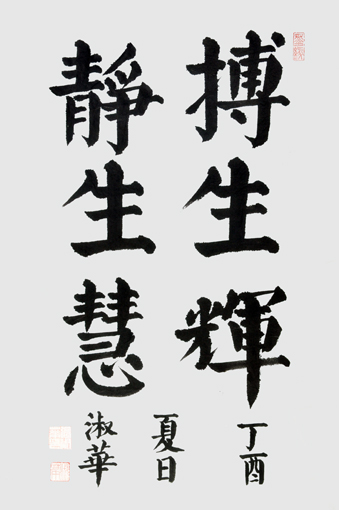 搏生輝
靜生慧
丁酉
夏日
淑華